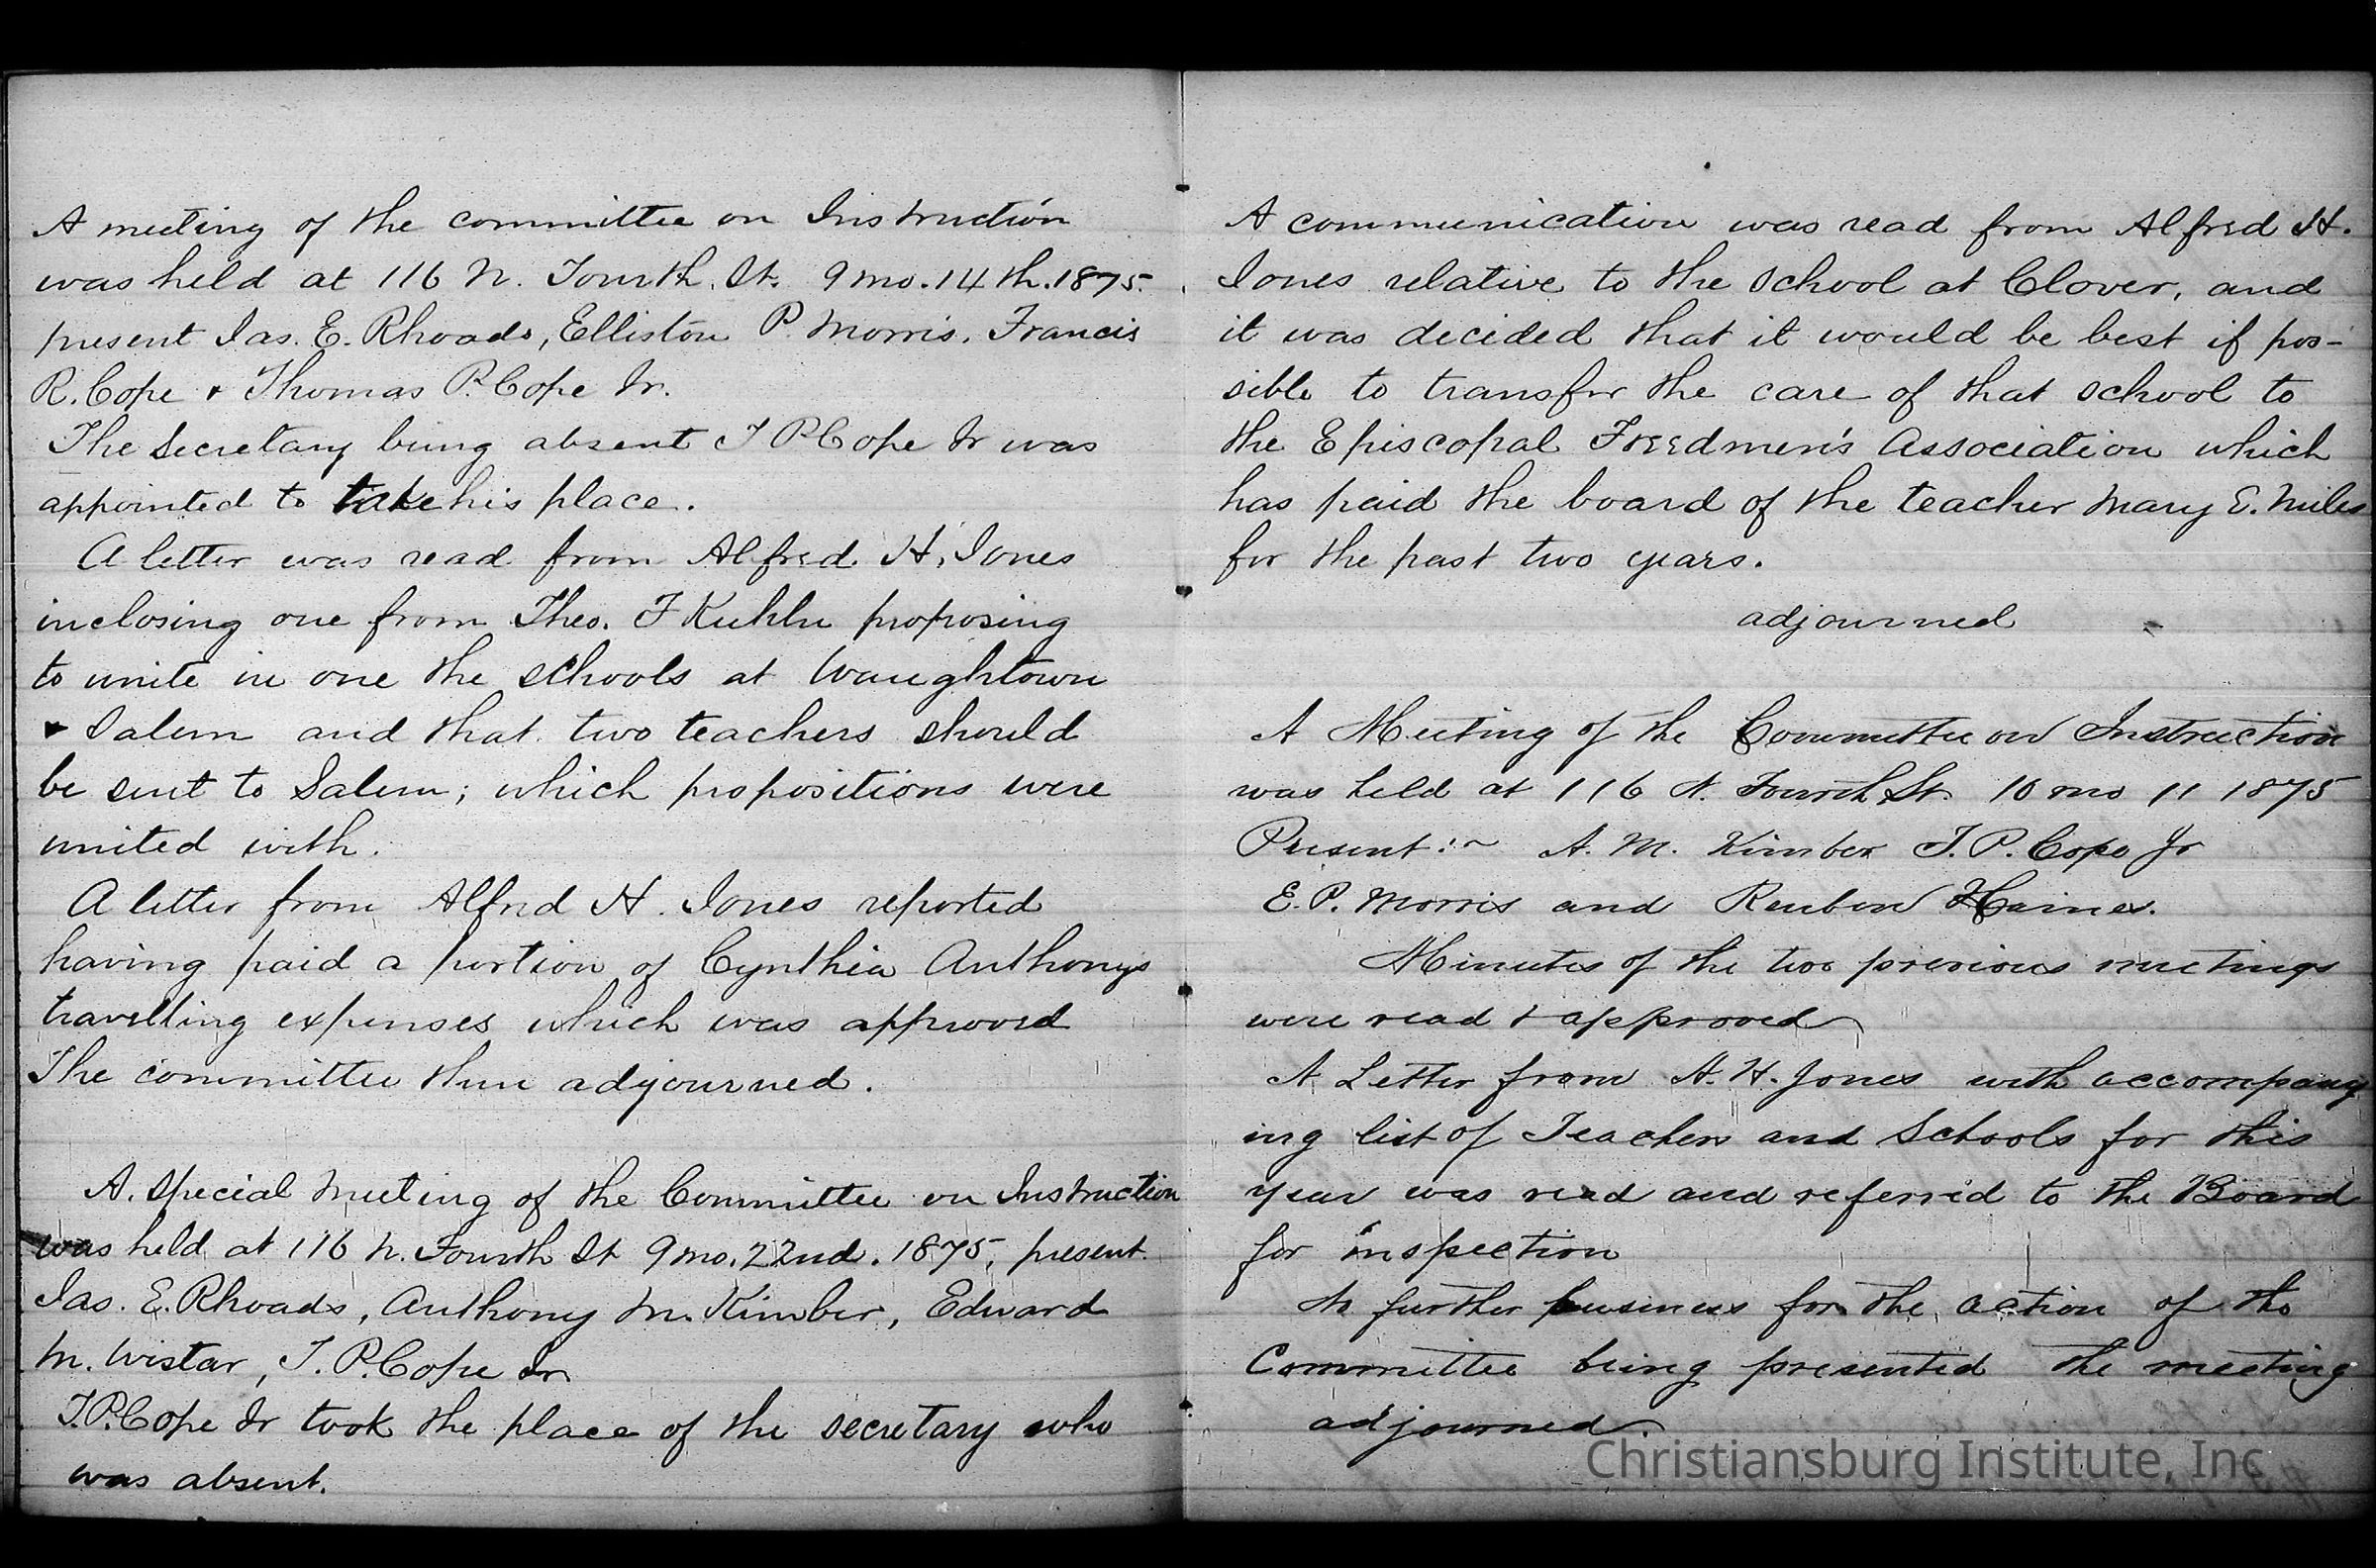 A meeting of the committee on Instruction
was held at 116 N. Fourth. St. 9 mo. 14 th. 1875.
present Jas. E. Rhoads, Elliston P. Morris, Francis
R. Cope & Thomas P. Cope Jr.
The Secretary being absent T P Cope Jr was
appointed to take his place.
A letter was read from Alfred H. Jones
inclosing one from Theo. F Kuhln proposing
to unite in one the schools at Waughtown
& Salem and that two teachers should
be sent to Salem; which propositions were
united with.
A letter from Alfred H. Jones reported
having paid a portion of Cynthia Anthonys
travelling expenses which was approved
The committee then adjourned.
A. Special meeting of the Committee on Instruction
was held at 116 N. Fourth St 9 mo. 22nd. 1875, present
Jas. E. Rhoads, Anthony M. Kimber, Edward
M. Wistar, T. P. Cope Jr.
T.P. Cope Jr took the place of the secretary who
was absent.
A communication was read from Alfred H.
Jones relative to the school at Clover, and
it was decided that it would be best if pos-
sible to transfer the care of that school to
the Episcopal Freedmen's Association which
has paid the board of the teacher Mary E. Miles
for the past two years.
adjourned
A Meeting of the Committee on Instruction
was held at 116 N. Fourth St. 10 mo 11 1875
Present:~ A. M. Kimber T. P. Cope Jr
E. P. Morris and Reuben Haines.
Minutes of the two previous meetings
were read & approved
A Letter from A. H. Jones with accompany
ing list of Teachers and Schools for this
year was read and referred to the Board
for inspection
No further business for the action of the
Committee being presented the meeting
adjourned.
Christiansburg Institute, Inc